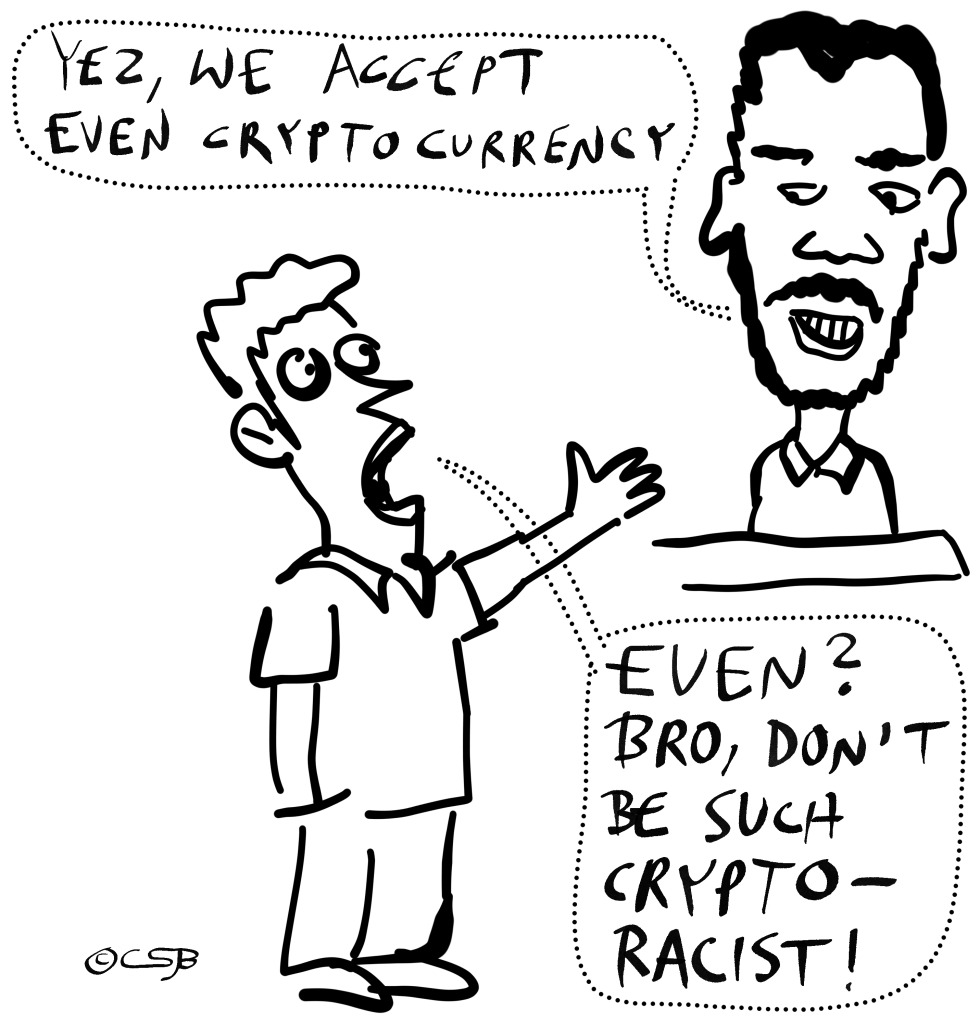 YEZ, WE ACCEPT
EVEN CRYPTOCURRENCY
EVEN?
BRO, DON'T
BE SUCH
CRYPTO-
RACIST!
©CSB